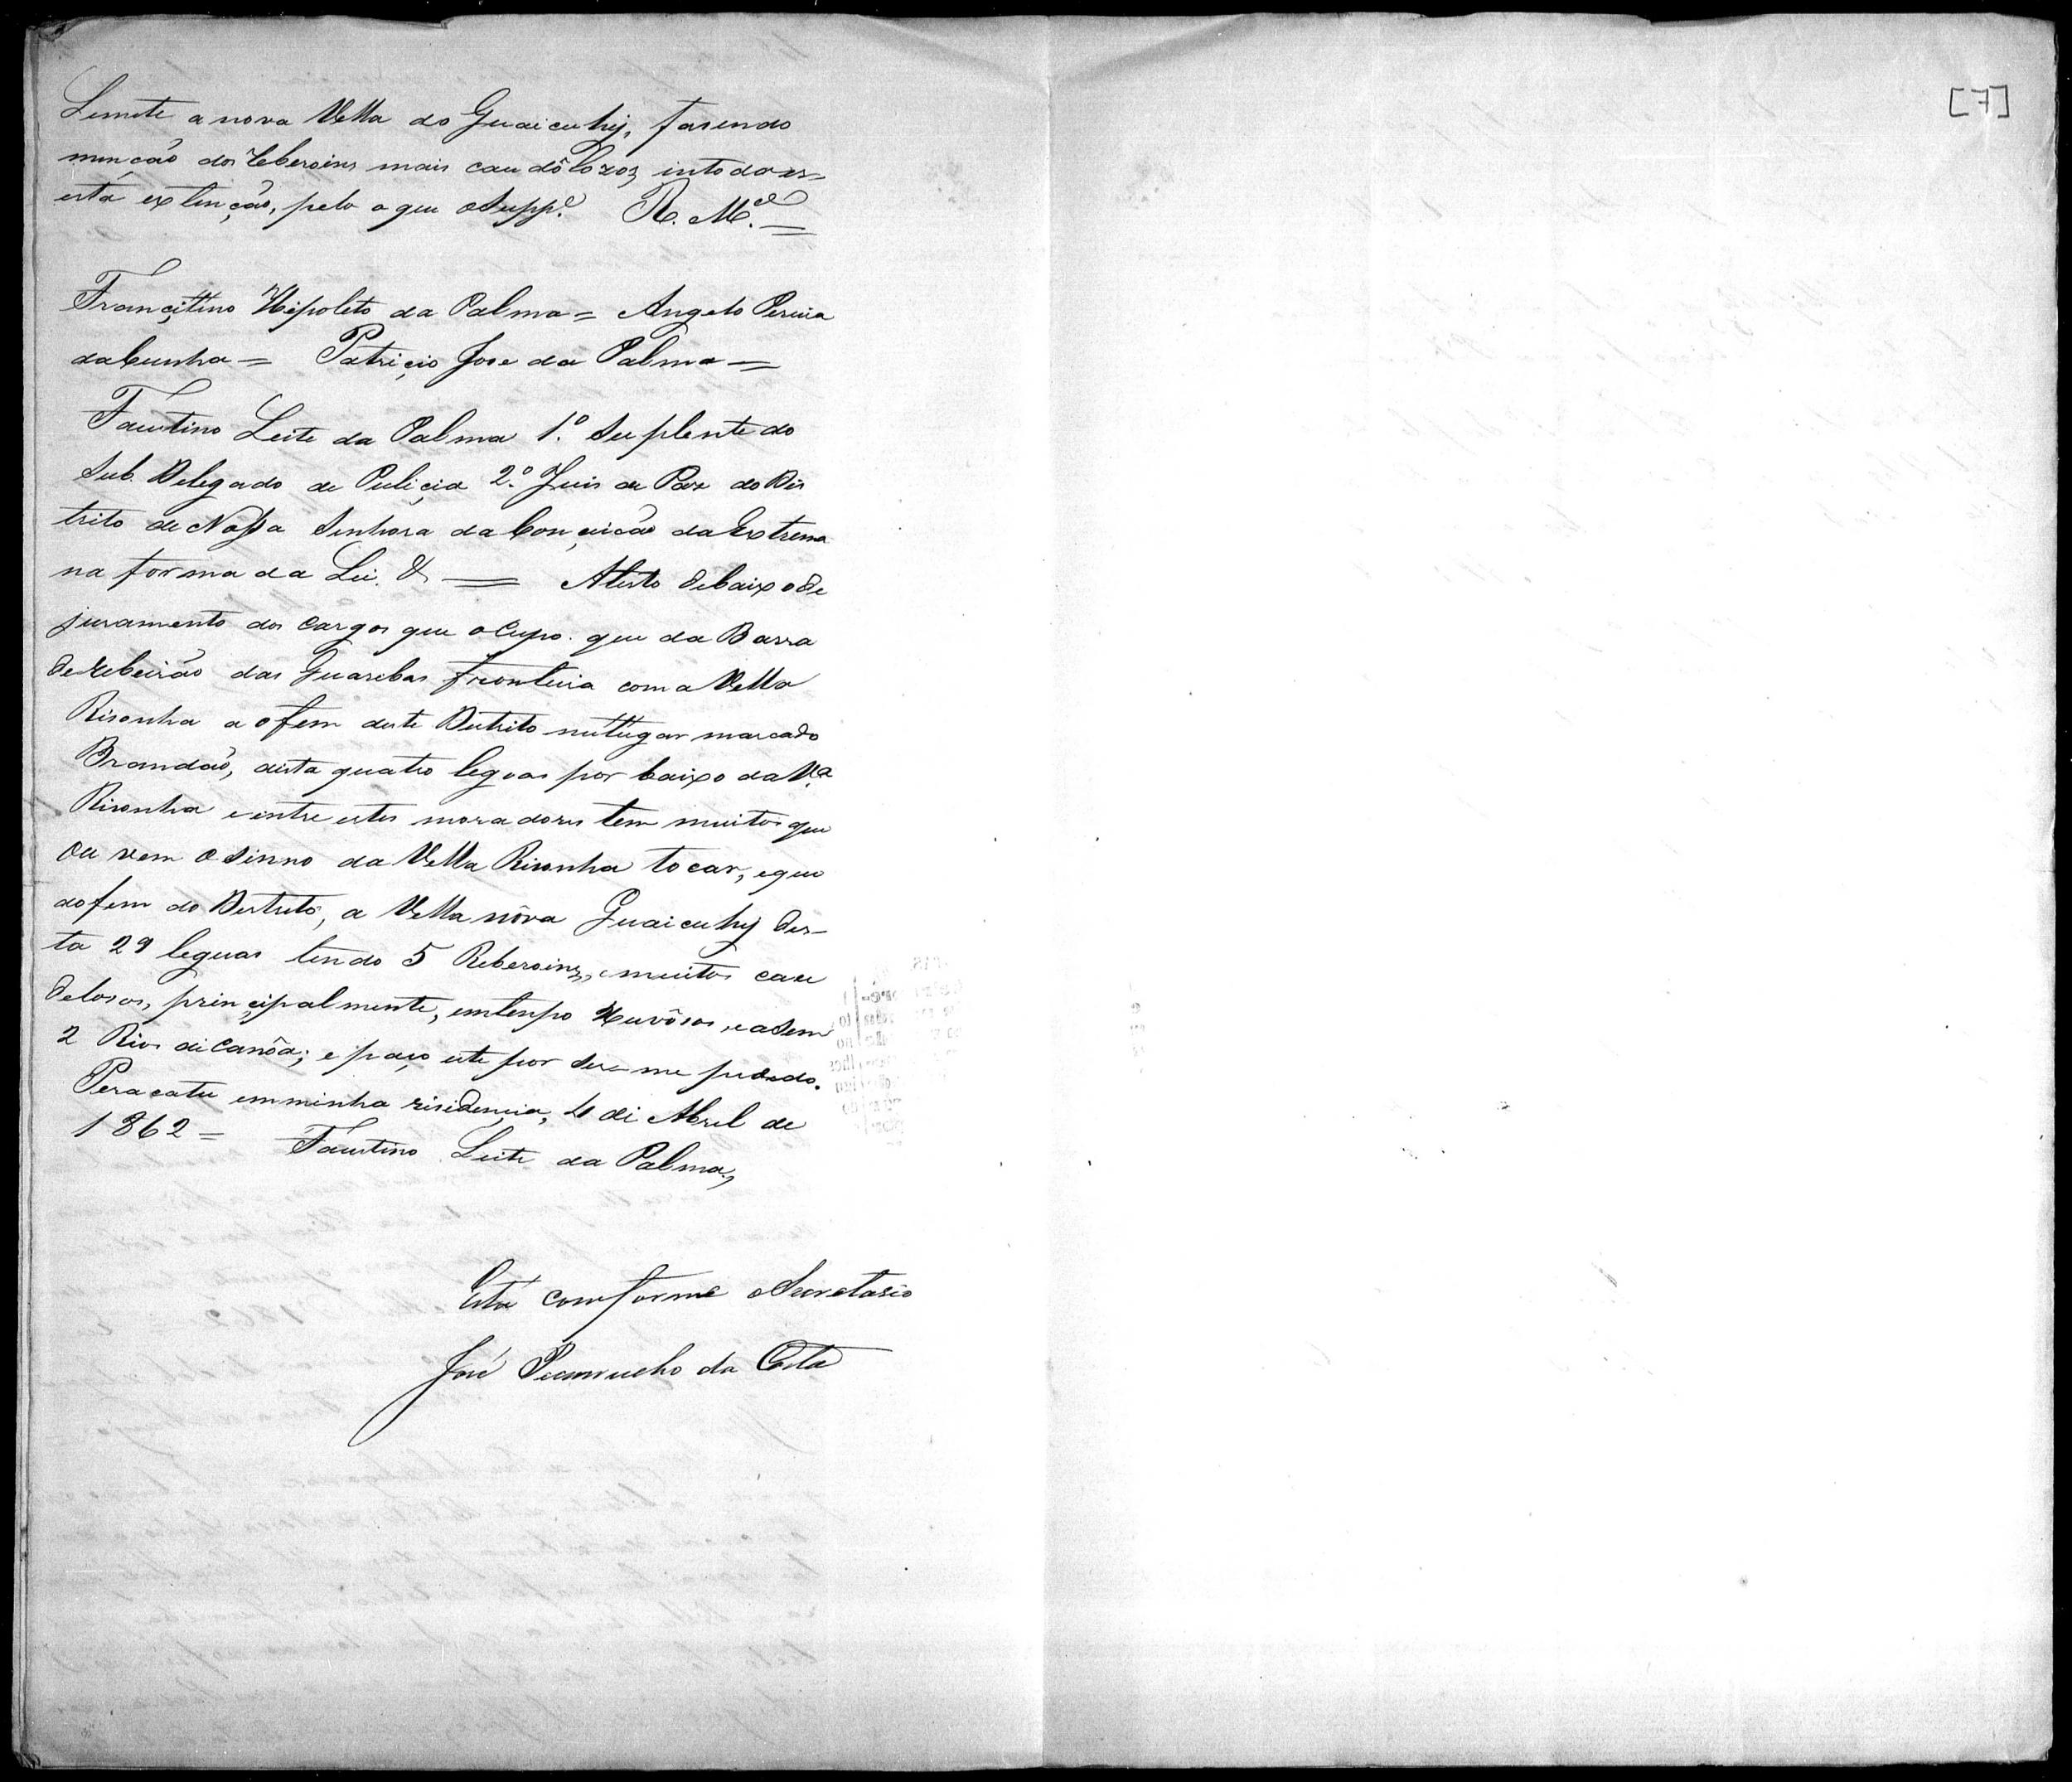 Lemite a nova Vella do Guaicuhy, fasendo
menção dos Reberoins mais caudôlozoz, intoda es-
esta extinção, pelo o que o Supp.e R. M.ce =
Françillino Hipoleto da Palma = Angelo Pereira
da Cunha = Patriçio Jose da Palma =
Faustino Leite da Palma 1.º Suplente do
Sub Delegado de Puliçia 2.º Juis de Paz do Dis
trito de Nossa Senhora da Conçeicão da Extrema
na forma da Lei. & = Atesto debaixo de
juramento dos cargos que ocupo. que da Barra
de Rebeirão das Guarebas fronteira com a Vella
Risonha a o fem deste Distrito nullugar marcado
Brandão, dista quatro legoas por baixo da V.a
Risonha e entre estes moradores tem muitos que
ou vem o Sinno da Vella Risonha tocar, e que
do fem do Destreto, a Vella nôva Guaicuhy des-
ta 29 leguas tendo 5 Reberoins, e muitos cau
delosos, prinçipalmente, em tenpo Xuvôsos, e a sem
2 Rios di Canôa; e paço este por ser-me pededo.
Peracatu em minha risidençia, 4 di Abril de
1862 = Faustino Leite da Palma,
Está comforme o Secretario
José da Costa
[7]